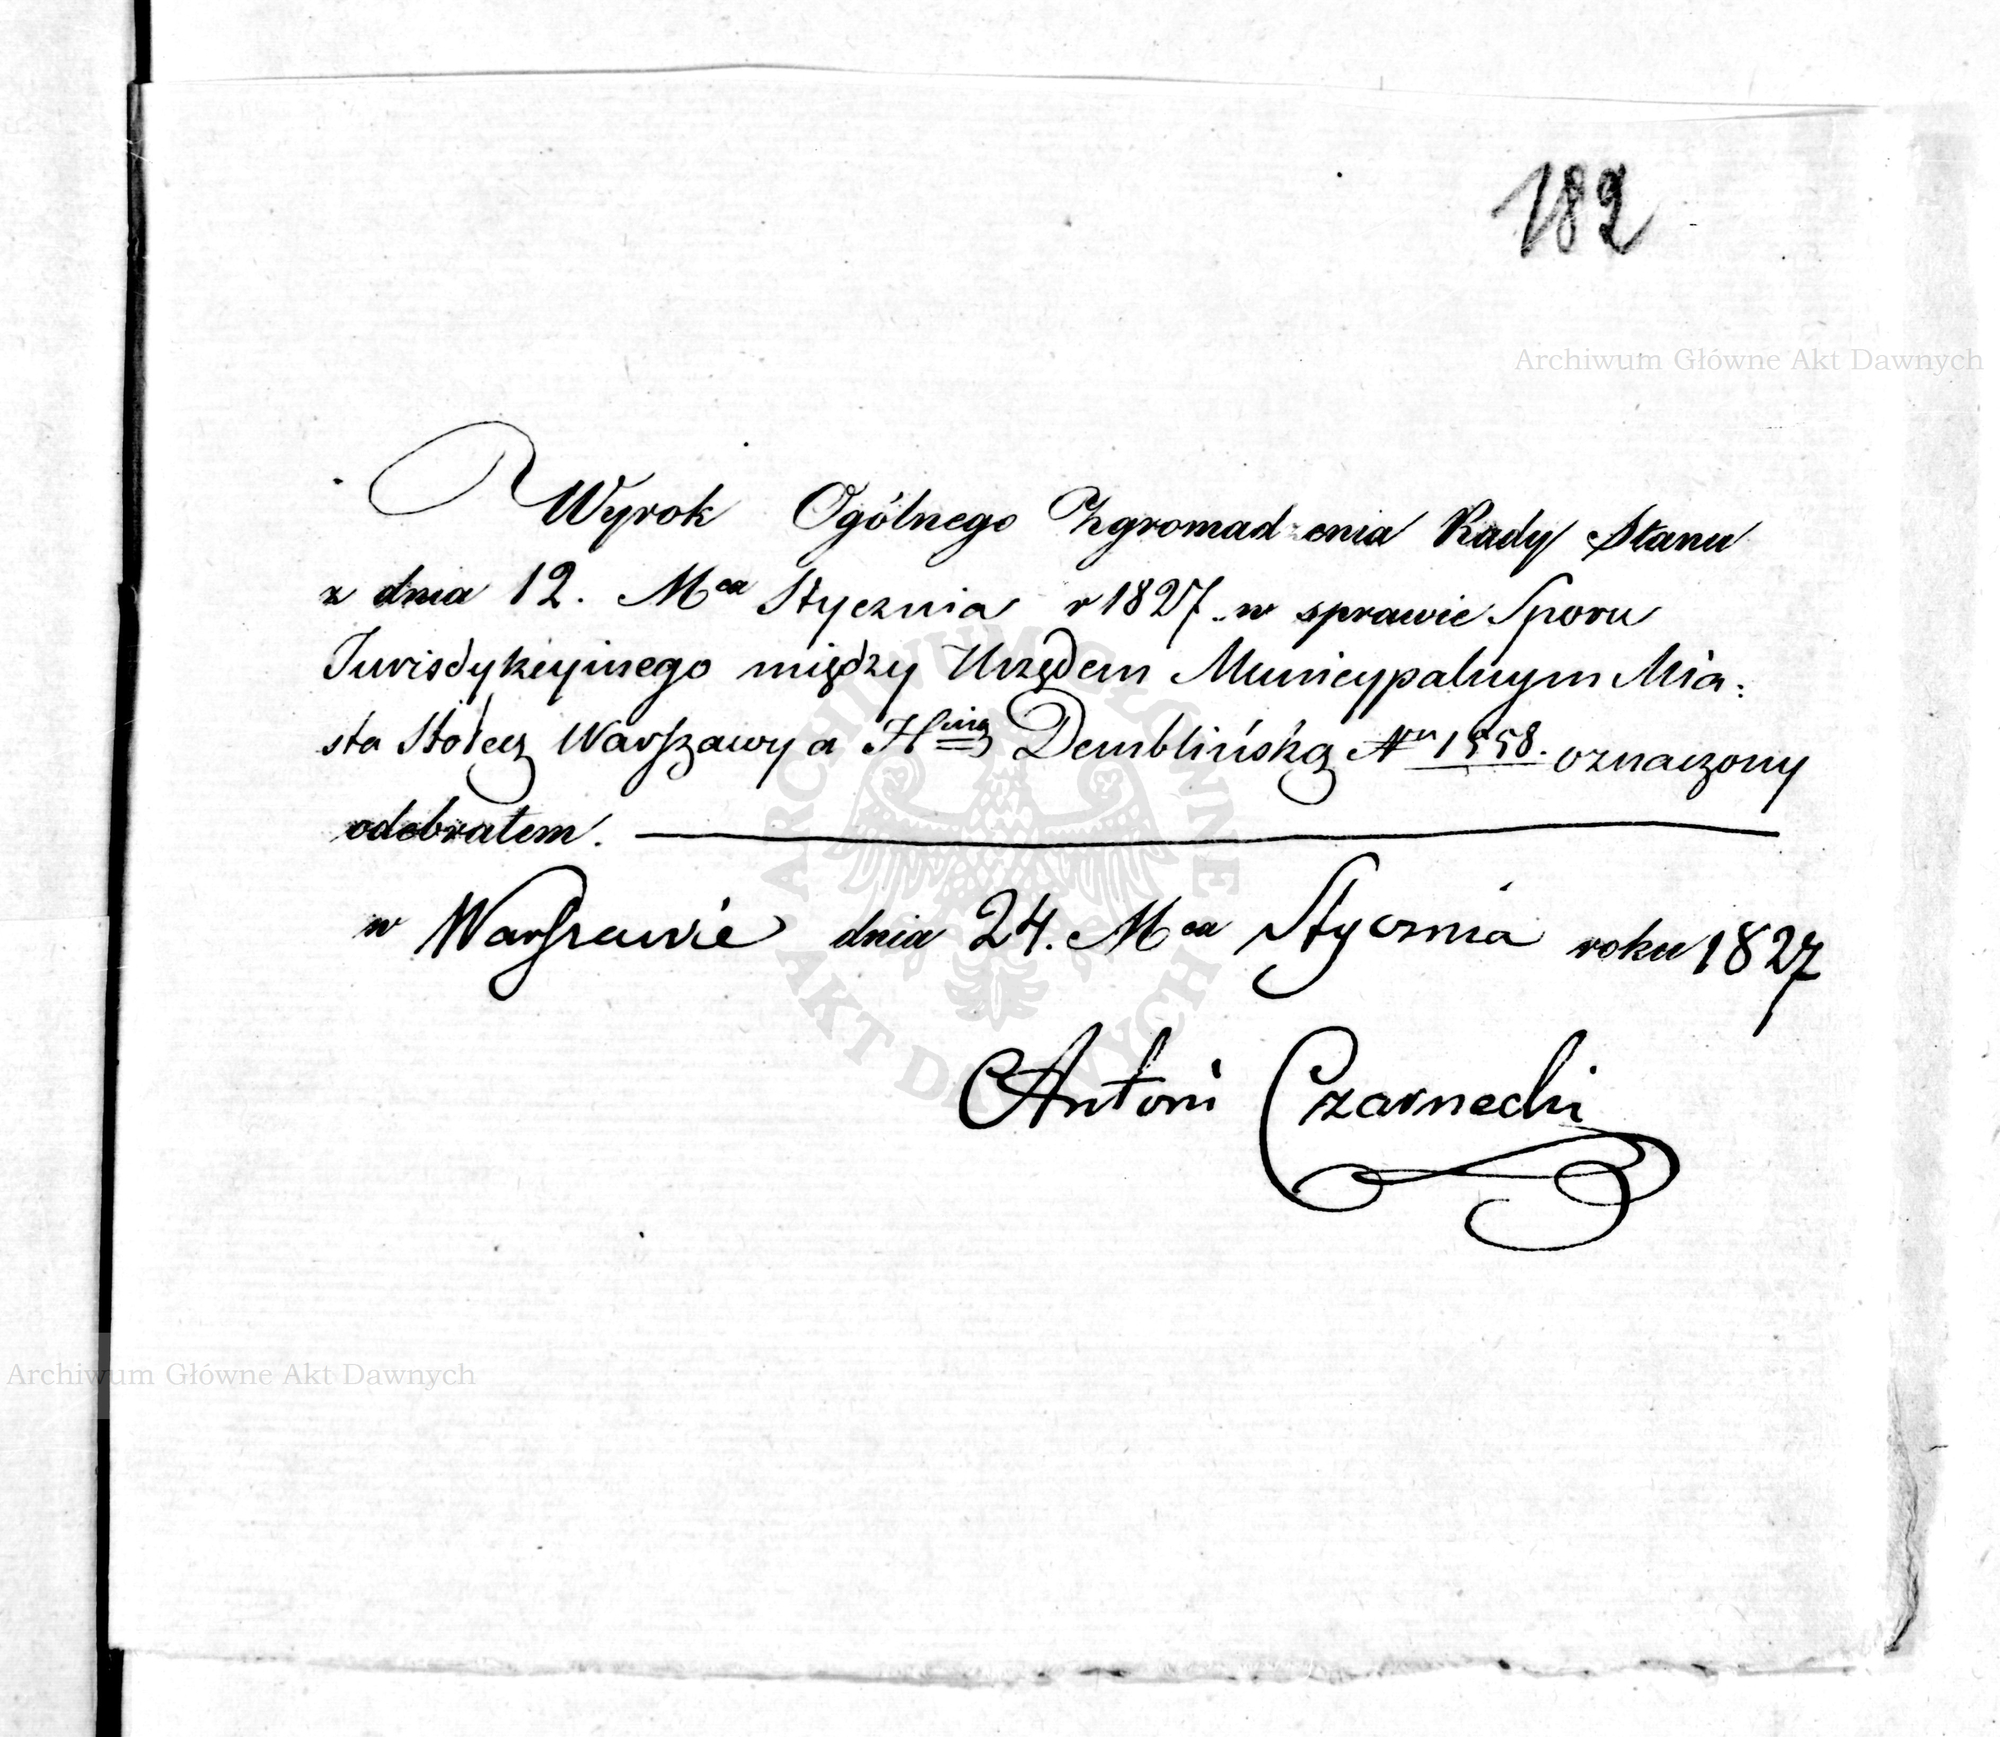 182
Archiwum Główne Akt Dawnych
Wyrok Ogólnego Zgromadzenia Rady Stanu
z dnia 12. Mca Stycznia r 1827. w sprawie Sporu
Jurisdykcyinego między Urzędem Municypalnym Mia:
sta Stołecz Warszawy a Hiną Demblińską Nru 1558. oznaczony
odebrałem.
w Warszawie dnia 24. Mca Stycznia roku 1827
Antoni Czarnecki
Archiwum Główne Akt Dawnych